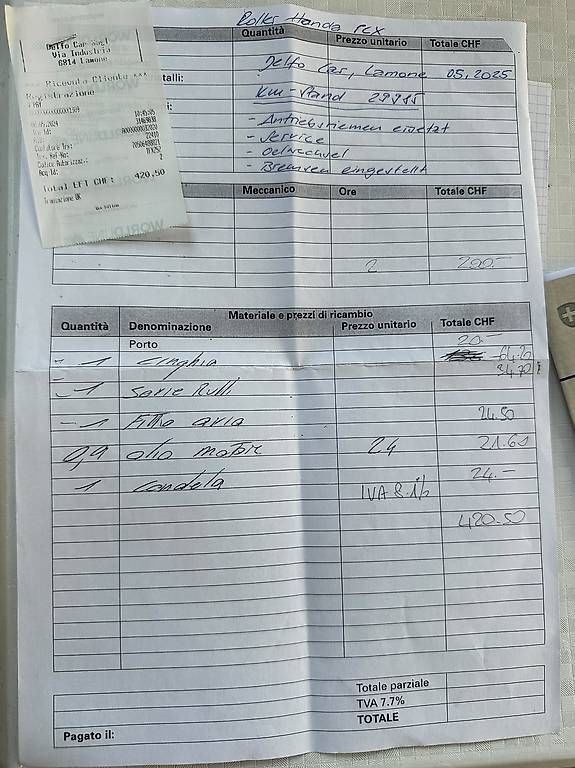 Rolks Honda PCX
Quantità Prezzo unitario Totale CHF
Delfo Car Sagl
Via Industria
6814 Lamone
*** Ricevuta Cliente ***
Registrazione
talli:
i:
Delfo Car, Lamone 05.2025
Km-Stand 29985
- Antriebsriemen ersetzt
- Service
- Oelwechsel
- Bremsen eingestellt
Total EFT CHF: 420.50
Transazione OK
WORLDLINE
Meccanico Ore Totale CHF
2 200.-
Materiale e prezzi di ricambio
Quantità Denominazione Prezzo unitario Totale CHF
Porto 20.-
- 1 cinghia 64.20
- 1 serie Rulli 34.70
- 1 Filtro aria 24.50
0,9 olio motore 24 21.60
1 candela 24.-
IVA 8.1%
420.50
Totale parziale
TVA 7.7%
TOTALE
Pagato il: